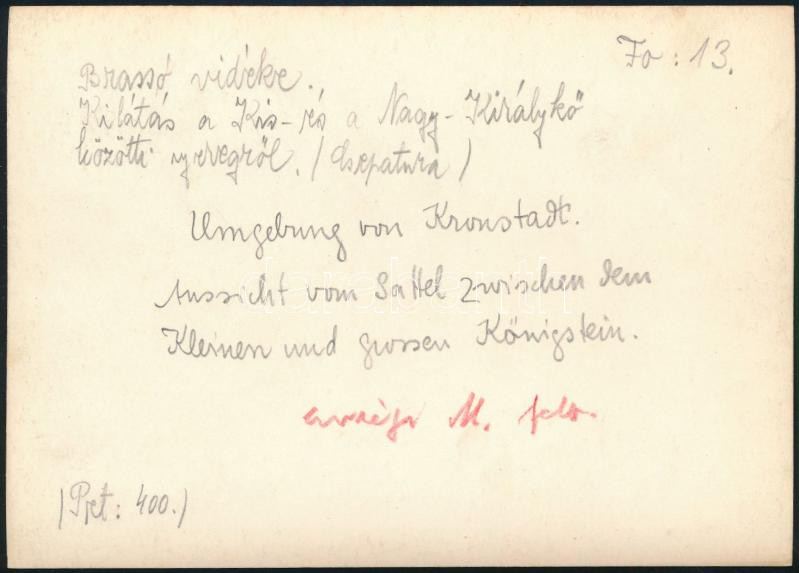 Fo : 13.
Brassó vidéke.
Kilátás a Kis- és a Nagy-Királykő
közötti nyeregről. (Csepatura)
Umgebung von Kronstadt.
Aussicht vom Sattel zwischen dem
Kleinen und grossen Königstein.
M. felv.
(Pret: 400.)
darabanth